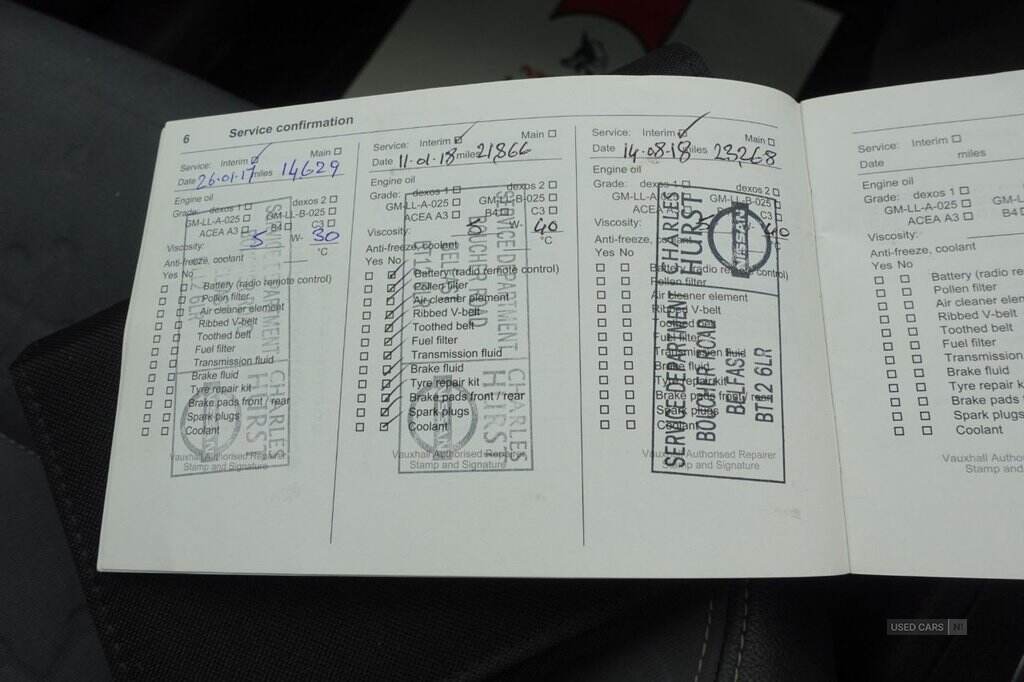 6 Service confirmation
Service: Interim Main
Date 26.01.17 miles 14629
Engine oil
Grade: dexos 1 dexos 2
GM-LL-A-025 GM-LL-B-025
ACEA A3 B4 C3
Viscosity: 5 W- 30
°C
Anti-freeze, coolant
Yes No
Battery (radio remote control)
Pollen filter
Air cleaner element
Ribbed V-belt
Toothed belt
Fuel filter
Transmission fluid
Brake fluid
Tyre repair kit
Brake pads front / rear
Spark plugs
Coolant
Vauxhall Authorised Repairer
Stamp and Signature
SERVICE DEPARTMENT
CHARLES
HURST
NISSAN
Service: Interim Main
Date 11.01.18 miles 21866
Engine oil
Grade: dexos 1 dexos 2
GM-LL-A-025 GM-LL-B-025
ACEA A3 B4 C3
Viscosity: W- 40
°C
Anti-freeze, coolant
Yes No
Battery (radio remote control)
Pollen filter
Air cleaner element
Ribbed V-belt
Toothed belt
Fuel filter
Transmission fluid
Brake fluid
Tyre repair kit
Brake pads front / rear
Spark plugs
Coolant
Vauxhall Authorised Repairer
Stamp and Signature
SERVICE DEPARTMENT
BOUCHER ROAD
CHARLES
HURST
NISSAN
Service: Interim Main
Date 14.08.18 miles 23268
Engine oil
Grade: dexos 1 dexos 2
GM-LL-A GM-LL-B-025
ACEA C3
Viscosity: 5 W- 40
°C
Anti-freeze, coolant
Yes No
Battery (radio remote control)
Pollen filter
Air cleaner element
Ribbed V-belt
Toothed belt
Fuel filter
Transmission fluid
Brake fluid
Tyre repair kit
Brake pads front / rear
Spark plugs
Coolant
Vauxhall Authorised Repairer
Stamp and Signature
CHARLES
HURST
NISSAN
SERVICE DEPARTMENT
BOUCHER ROAD
BELFAST
BT12 6LR
Service: Interim
Date miles
Engine oil
Grade: dexos 1
GM-LL-A-025 GM-L
ACEA A3 B4
Viscosity:
Anti-freeze, coolant
Yes No
Battery (radio re
Pollen filter
Air cleaner elem
Ribbed V-belt
Toothed belt
Fuel filter
Transmission
Brake fluid
Tyre repair k
Brake pads
Spark plugs
Coolant
Vauxhall Authoris
Stamp and
USED CARS NI